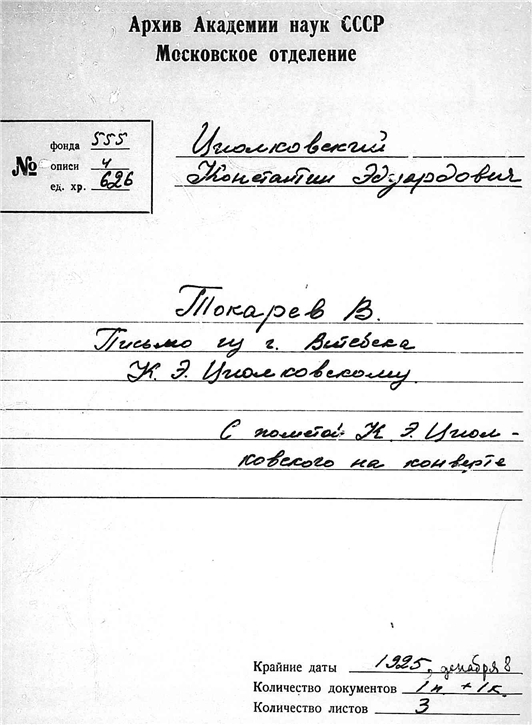 Архив Академии наук СССР
Московское отделение
№
фонда 555
описи 4
ед. хр. 626
Циолковский
Константин Эдуардович
Токарев В.
Письмо из г. Витебска
К. Э. Циолковскому.
С пометой К. Э. Циол-
ковского на конверте
Крайние даты 1925, декабря 8
Количество документов 1 п. + 1 к.
Количество листов 3